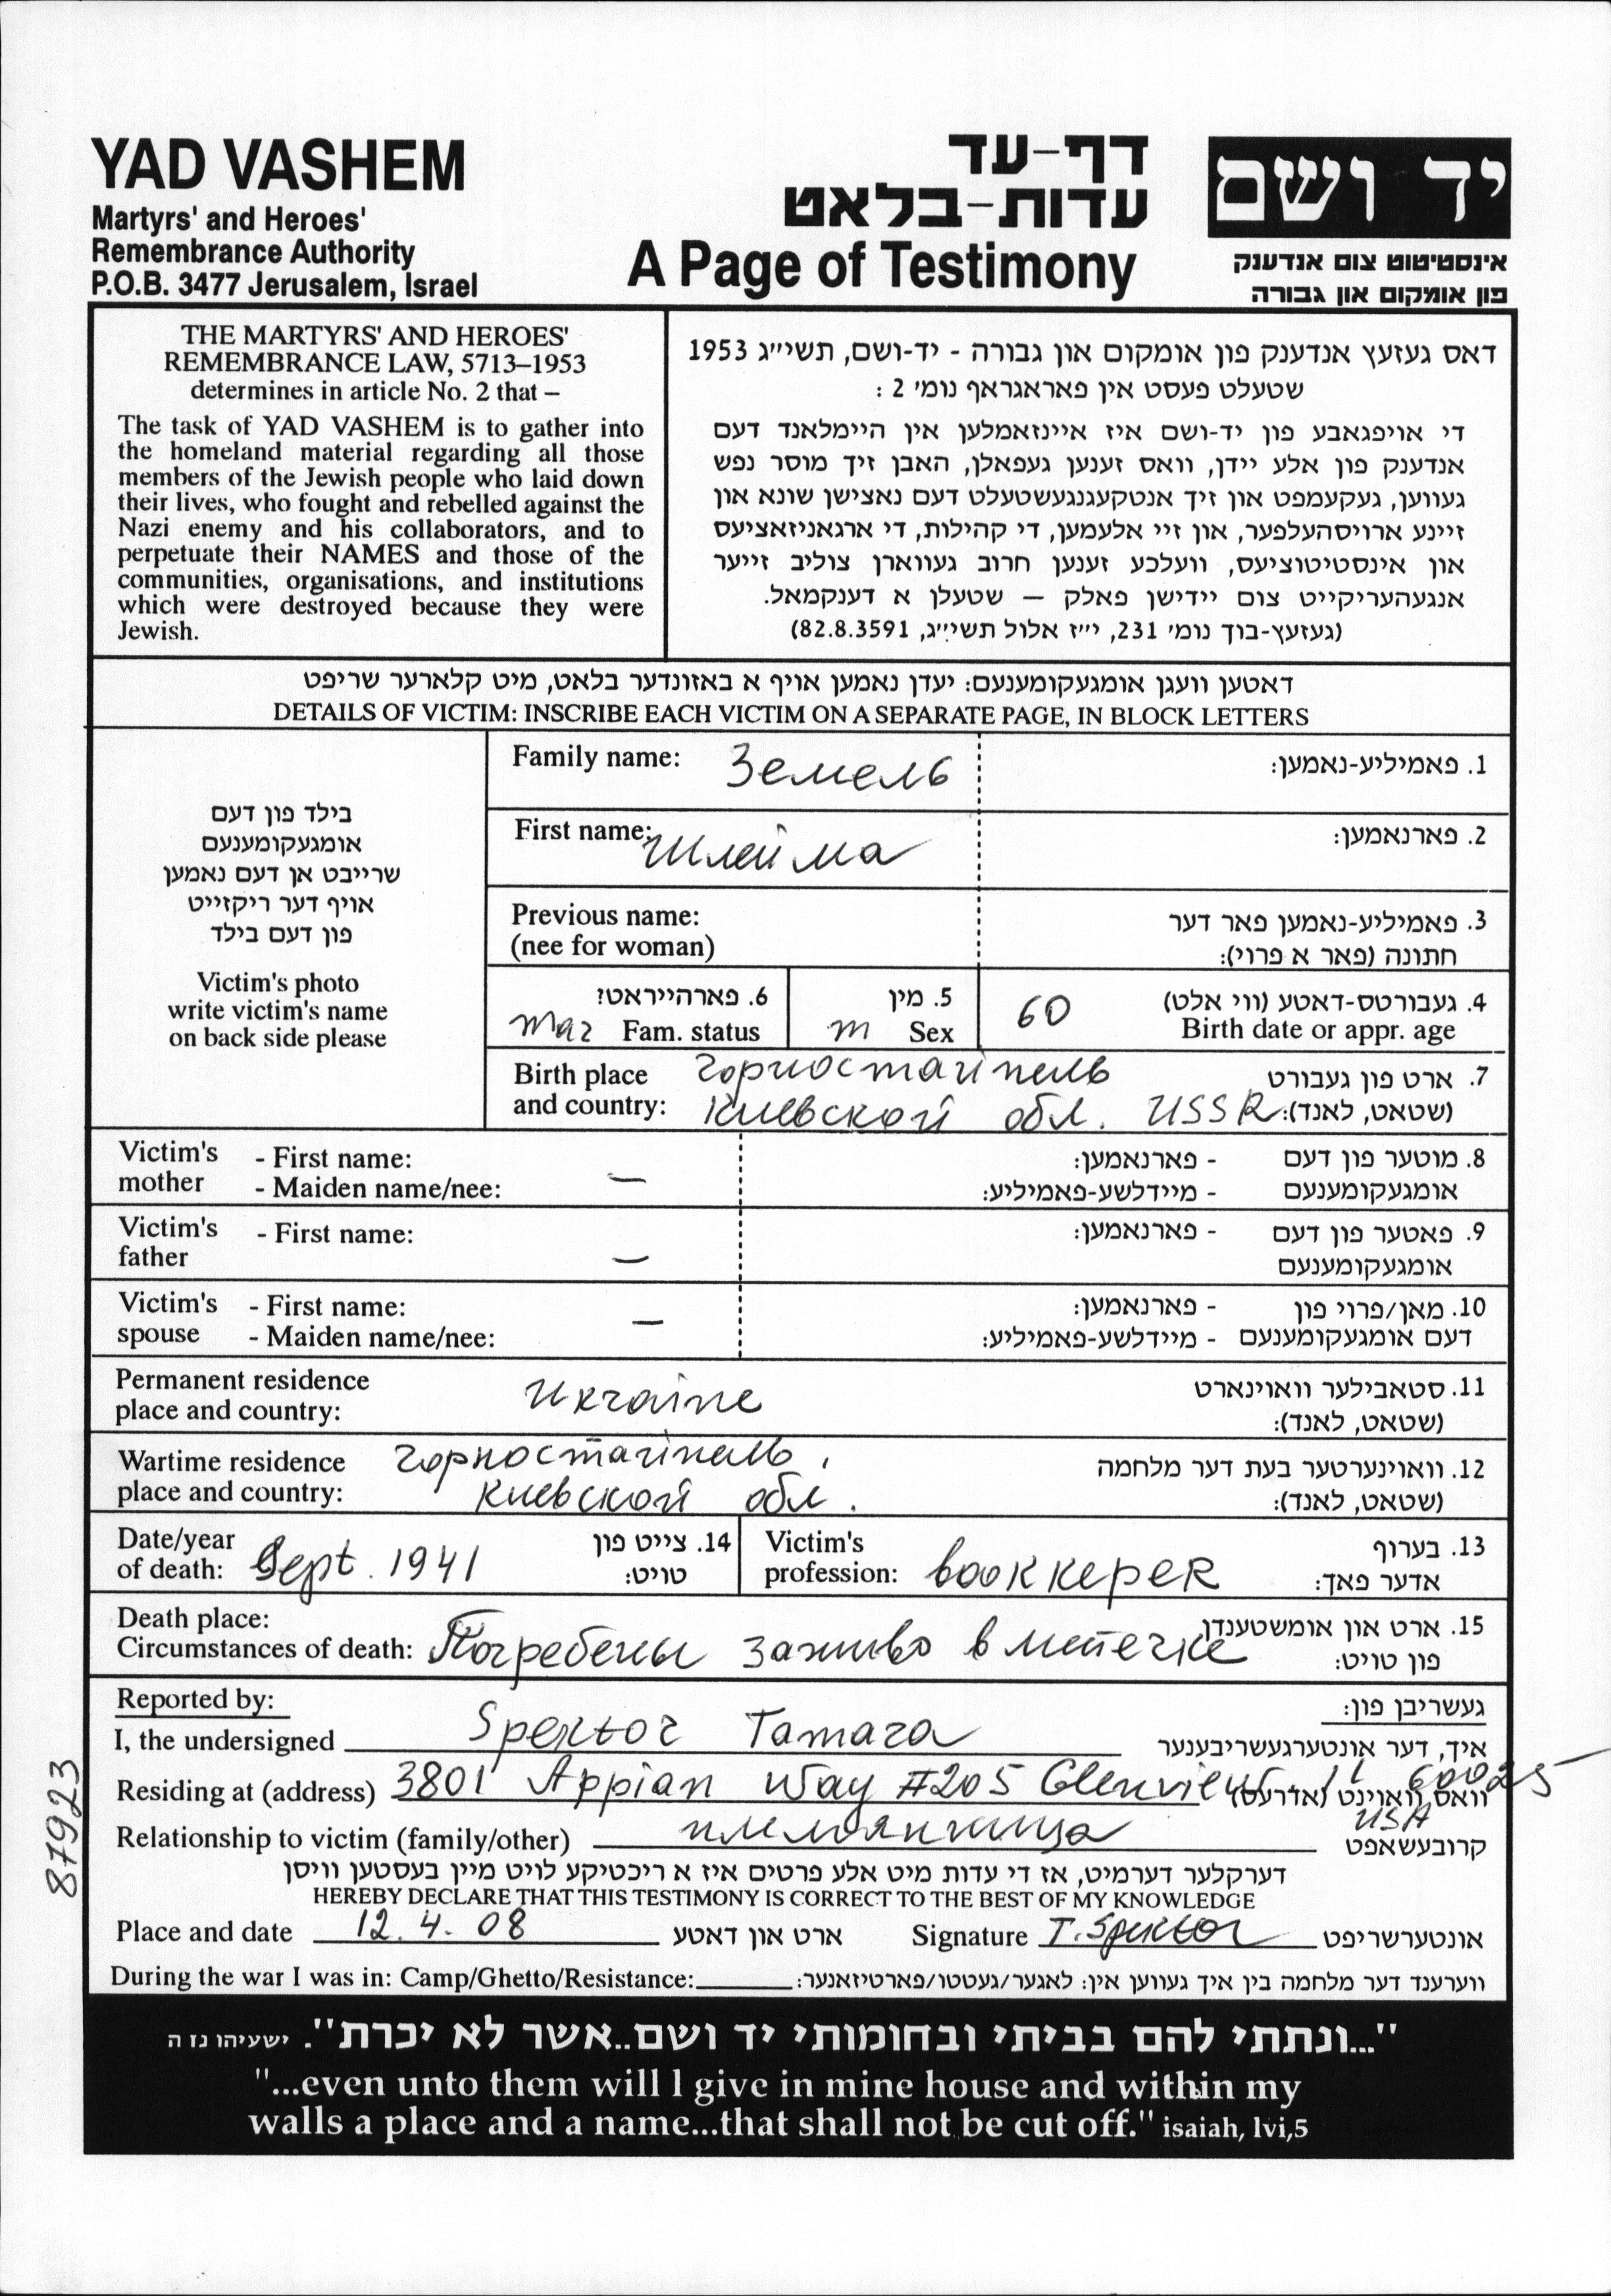 YAD VASHEM
Martyrs' and Heroes'
Remembrance Authority
P.O.B. 3477 Jerusalem, Israel
דף-עד
עדות-בלאט
A Page of Testimony
יד ושם
אינסטיטוט צום אנדענק
פון אומקום און גבורה
THE MARTYRS' AND HEROES'
REMEMBRANCE LAW, 5713–1953
determines in article No. 2 that –
The task of YAD VASHEM is to gather into
the homeland material regarding all those
members of the Jewish people who laid down
their lives, who fought and rebelled against the
Nazi enemy and his collaborators, and to
perpetuate their NAMES and those of the
communities, organisations, and institutions
which were destroyed because they were
Jewish.
דאס געזעץ אנדענק פון אומקום און גבורה - יד-ושם, תשי״ג 1953
שטעלט פעסט אין פאראגראף נומ׳ 2 :
די אויפגאבע פון יד-ושם איז איינזאמלען אין היימלאנד דעם
אנדענק פון אלע יידן, וואס זענען געפאלן, האבן זיך מוסר נפש
געווען, געקעמפט און זיך אנטקעגנגעשטעלט דעם נאצישן שונא און
זיינע ארויסהעלפער, און זיי אלעמען, די קהילות, די ארגאניזאציעס
און אינסטיטוציעס, וועלכע זענען חרוב געווארן צוליב זייער
אנגעהעריקייט צום יידישן פאלק — שטעלן א דענקמאל.
(געזעץ-בוך נומ׳ 231, י״ז אלול תשי״ג, 82.8.3591)
דאטען וועגן אומגעקומענעם: יעדן נאמען אויף א באזונדער בלאט, מיט קלארער שריפט
DETAILS OF VICTIM: INSCRIBE EACH VICTIM ON A SEPARATE PAGE, IN BLOCK LETTERS
בילד פון דעם
אומגעקומענעם
שרייבט אן דעם נאמען
אויף דער ריקזייט
פון דעם בילד
Victim's photo
write victim's name
on back side please
Family name: Земель 1. פאמיליע-נאמען:
First name: Шлейма 2. פארנאמען:
Previous name:
(nee for woman)
3. פאמיליע-נאמען פאר דער
חתונה (פאר א פרוי):
6. פארהייראט?
mar Fam. status
5. מין
m Sex
60
4. געבורטס-דאטע (ווי אלט)
Birth date or appr. age
Birth place Горностайпель 7. ארט פון געבורט
and country: Киевской обл. USSR (שטאט, לאנד):
Victim's - First name: — - פארנאמען: 8. מוטער פון דעם
mother - Maiden name/nee: - מיידלשע-פאמיליע: אומגעקומענעם
Victim's - First name: - פארנאמען: 9. פאטער פון דעם
father — אומגעקומענעם
Victim's - First name: — - פארנאמען: 10. מאן/פרוי פון
spouse - Maiden name/nee: - מיידלשע-פאמיליע: דעם אומגעקומענעם
Permanent residence Ukraine 11. סטאבילער וואוינארט
place and country: (שטאט, לאנד):
Wartime residence Горностайпель, 12. וואוינערטער בעת דער מלחמה
place and country: Киевской обл. (שטאט, לאנד):
Date/year 14. צייט פון
of death: Sept. 1941 טויט:
Victim's 13. בערוף
profession: bookkeper אדער פאך:
Death place: 15. ארט און אומשטענדן
Circumstances of death: Погребены заживо в местечке פון טויט:
Reported by: געשריבן פון:
I, the undersigned Spektor Tamara איך, דער אונטערגעשריבענער
Residing at (address) 3801 Appian Way #205 Glenview. Il 60025 וואס וואוינט (אדרעס)
USA
Relationship to victim (family/other) племянница קרובעשאפט
דערקלער דערמיט, אז די עדות מיט אלע פרטים איז א ריכטיקע לויט מיין בעסטען וויסן
HEREBY DECLARE THAT THIS TESTIMONY IS CORRECT TO THE BEST OF MY KNOWLEDGE
Place and date 12. 4. 08 ארט און דאטע Signature T. Spektor אונטערשריפט
During the war I was in: Camp/Ghetto/Resistance: ווערענד דער מלחמה בין איך געווען אין: לאגער/געטטו/פארטיזאנער:
87923
"...ונתתי להם בביתי ובחומותי יד ושם..אשר לא יכרת". ישעיהו נז ה
"...even unto them will I give in mine house and within my
walls a place and a name...that shall not be cut off." isaiah, lvi,5